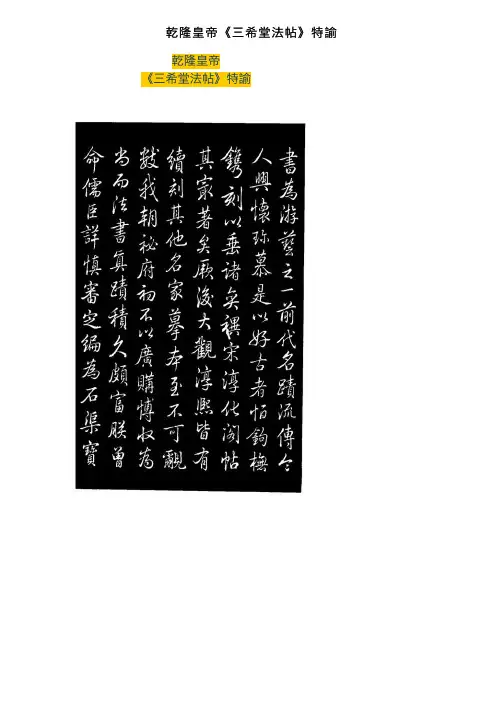 乾隆皇帝《三希堂法帖》特諭
乾隆皇帝
《三希堂法帖》特諭
書為游藝之一前代名蹟流傳令
人興懷珎慕是以好古者恒鉤橅
鐫刻以垂諸奕禩宋淳化閣帖
其冣著矣厥後大觀淳熙皆有
續刻其他名家摹本至不可覼
數我朝祕府初不以廣購愽收為
尚而法書真蹟積久頗富朕曾
命儒臣詳慎審定編為石渠寶